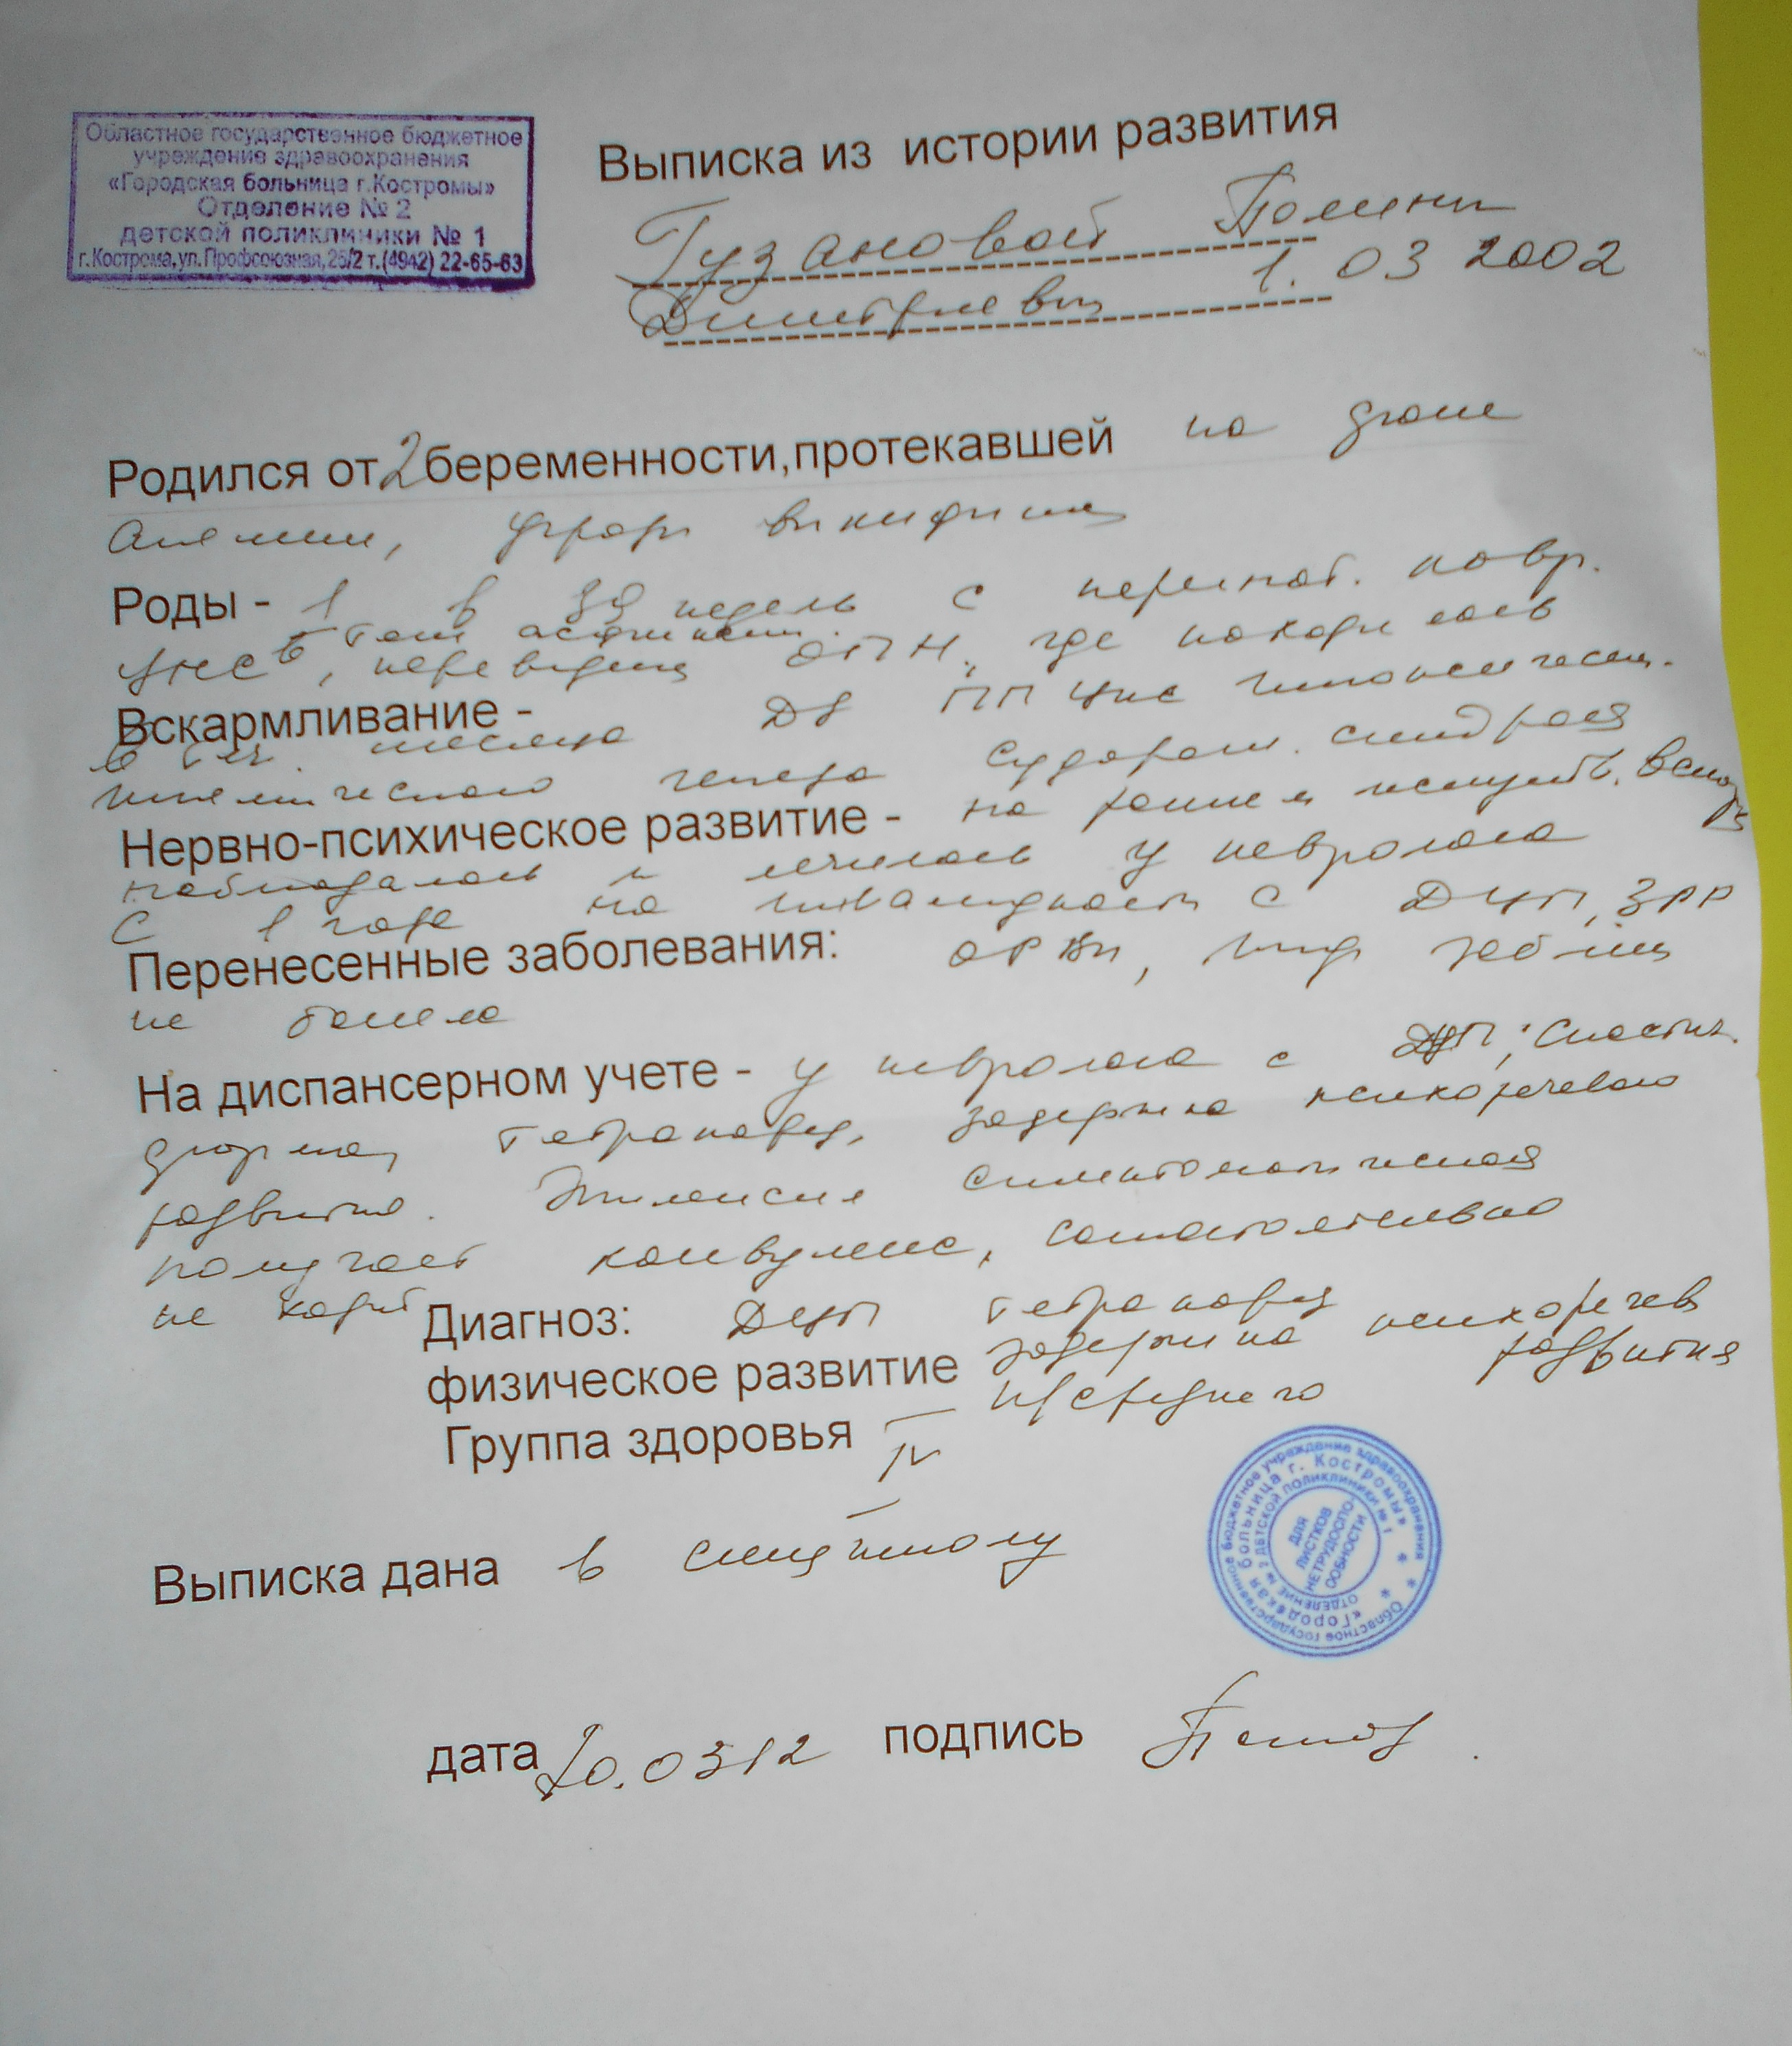 Областное государственное бюджетное
учреждение здравоохранения
«Городская больница г.Костромы»
Отделение № 2
детской поликлиники № 1
г.Кострома, ул.Профсоюзная, 25/2 т.(4942) 22-65-63
Выписка из истории развития
Гузановой Полины
Дмитриевны 1. 03 2002
Родился от 2 беременности,протекавшей на фоне
анемии,
Роды - 1 в 39 недель с перинат. повр.
ЦНС, переведена ОПН, где находилась
Вскармливание - ДS ПП ЦНС
в теч. месяца
ишемического генеза судорожн. синдром
Нервно-психическое развитие - на
наблюдалась и лечилась у невролога
с 1 года на инвалидности с ДЦП, ЗРР
Перенесенные заболевания: ОРВИ,
не болела
На диспансерном учете - у невролога с ДЦП, спастич.
форма, тетрапарез, задержка психоречевого
развития. Эпилепсия симптоматическая
получает конвулекс, самостоятельно
не ходит
Диагноз: ДЦП тетрапарез
задержка психоречев
развития
физическое развитие н/среднего
Группа здоровья IV
Выписка дана в спец школу
Областное государственное бюджетное учреждение здравоохранения
«Городская больница г. Костромы»
отделение № 2 детской поликлиники № 1
для
листков
нетрудоспо-
собности
дата 20.03 12 подпись